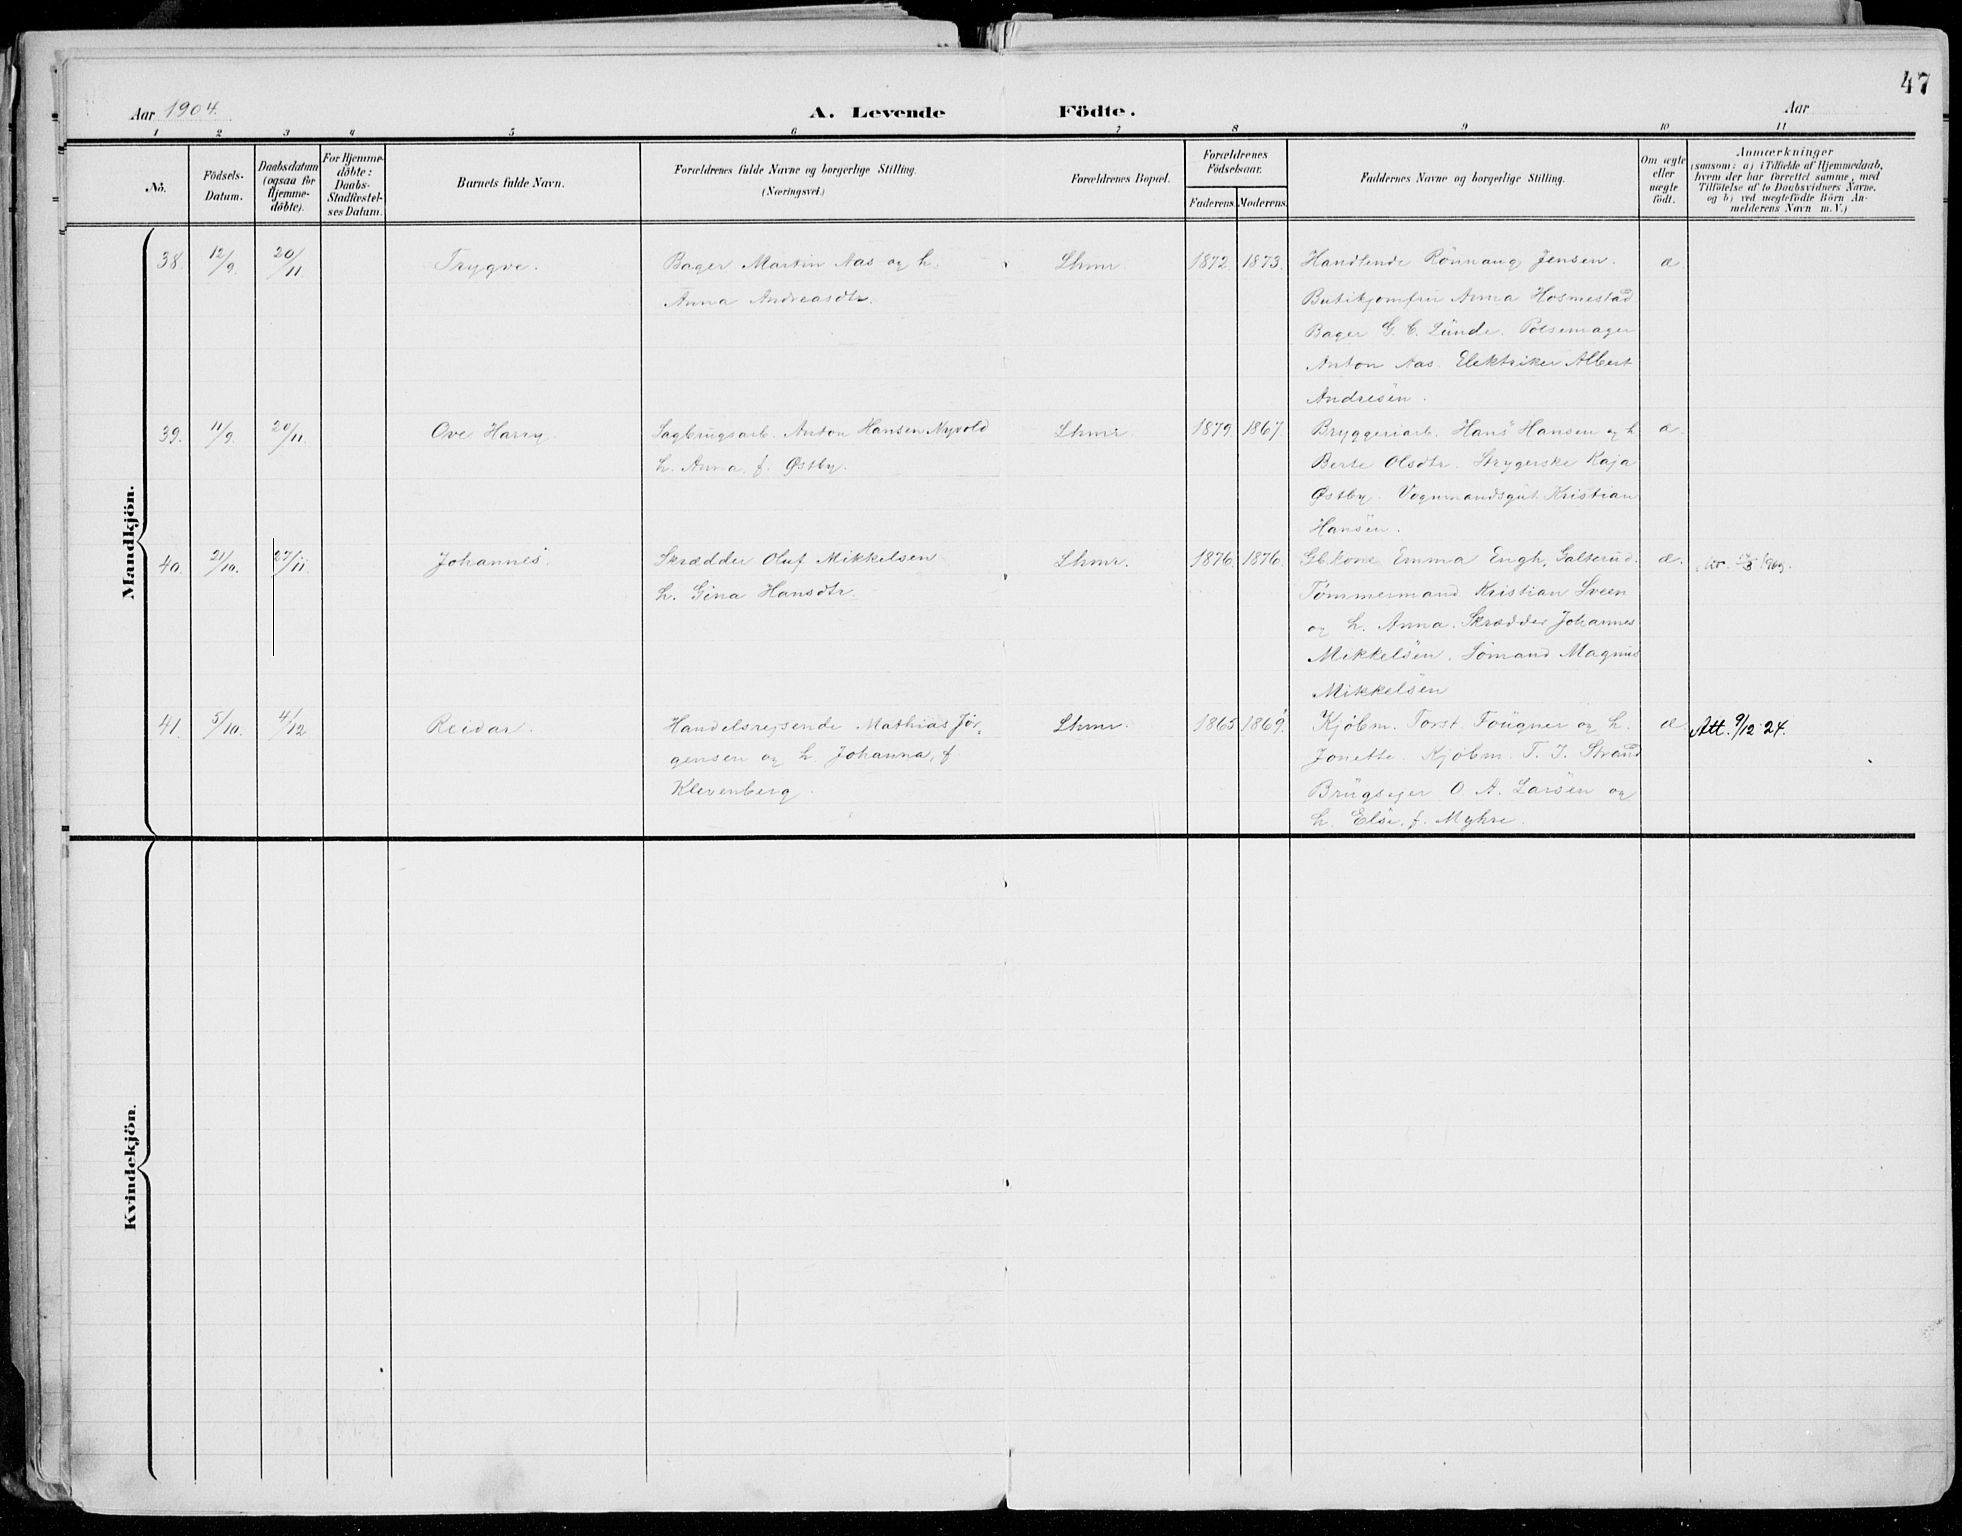 47
Aar 1904.
A. Levende Födte.
Aar
1 2 3 4 5 6 7 8 9 10 11
No.
Födsels-
Datum.
Daabsdatum
(ogsaa for
Hjemme-
döbte).
For Hjemme-
döbte:
Daabs-
Stadfæstel-
ses Datum.
Barnets fulde Navn.
Forældrenes fulde Navne og borgerlige Stilling.
(Næringsvei.)
Forældrenes Bopæl.
Forældrenes
Födselsaar.
Faderens. Moderens.
Faddernes Navne og borgerlige Stilling.
Om ægte
eller
uægte
födt.
Anmærkninger
(saasom: a) i Tilfælde af Hjemmedaab,
hvem der har forrettet samme, med
Tilföielse af to Daabsvidners Navne,
og b) ved uægtefödte Börn An-
melderens Navn m.V.)
Mandkjön.
38. 12/9. 20/11 Trygve. Bager Martin Aas og h. Lhmr. 1872. 1873. Handlende Rönnaug Jensen. æ.
Anna Andreasdtr. Butikjomfru Anna Hosmestad
Bager G. C. Lunde. Pølsemager
Anton Aas. Elektriker Albert
Andresen.
39. 11/9. 20/11. Ove Harry. Sagbrugsarb. Anton Hansen Nyvold Lhmr. 1879. 1867. Bryggeriarb. Hans Hansen og h. æ.
h. Anna, f. Østby. Berte Olsdtr. Strygerske Kaja
Østby. Vognmandsgut Kristian
Hansen.
40. 21/10. 27/11. Johannes. Skrædder Oluf Mikkelsen Lhmr. 1876. 1876. Gbkone Emma Engh, Salterud. æ.
h. Gina Hansdtr. Tømmermand Kristian Sveen
og h. Anna. Skrædder Johannes
Mikkelsen. Sömand Magnus
Mikkelsen
41. 5/10. 4/12 Reidar. Handelsrejsende Mathias Jör- Lhmr. 1865 1869. Kjöbm. Torst. Fougner og h. æ. Att. 9/12 24.
gensen og h. Johanna, f. Jonette. Kjöbm. T. J. Strand
Klevenberg. Brugseger O. A. Larsen og
h. Else, f. Myhre.
Kvindekjön.